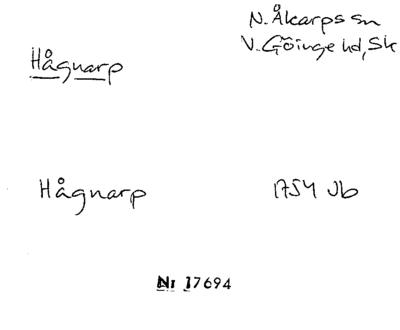 N. Åkarps sn
V. Göinge hd, Sk
Hågnarp
Hågnarp 1754 Jb
Nr 17694